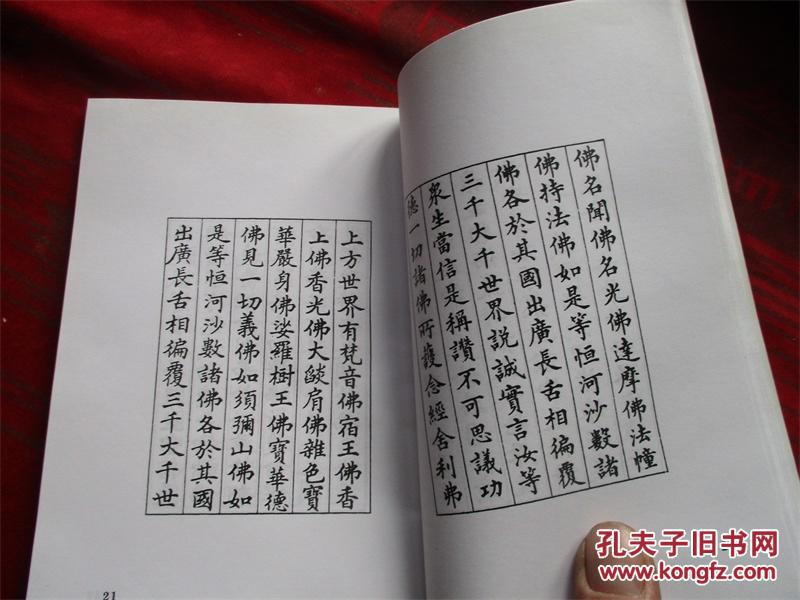 佛名聞佛名光佛達摩佛法幢
佛持法佛如是等恒河沙數諸
佛各於其國出廣長舌相徧覆
三千大千世界說誠實言汝等
衆生當信是稱讚不可思議功
德一切諸佛所護念經舍利弗
上方世界有梵音佛宿王佛香
上佛香光佛大燄肩佛雜色寶
華嚴身佛娑羅樹王佛寶華德
佛見一切義佛如須彌山佛如
是等恒河沙數諸佛各於其國
出廣長舌相徧覆三千大千世
21
孔夫子旧书网
www.kongfz.com